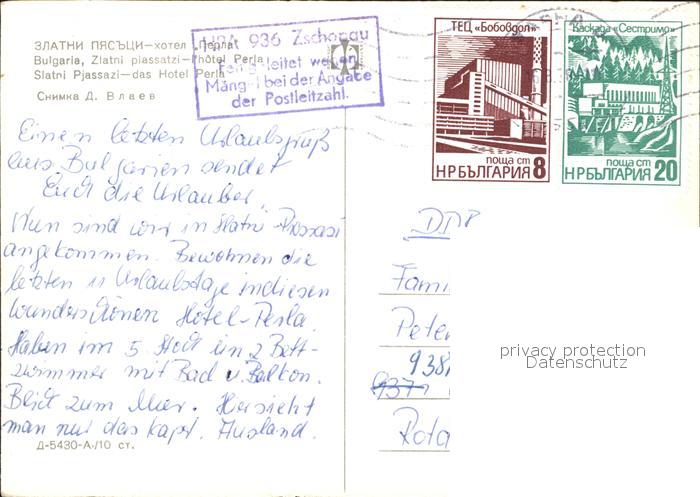 ЗЛАТНИ ПЯСЪЦИ—хотел „Перла"
Bulgaria, Zlatni piassatzi—l'hôtel Perla
Slatni Pjassazi—das Hotel Perla
Снимка Д. Влаев
HPA 936 Zschopau
Fehlgeleitet wegen
Mängel bei der Angabe
der Postleitzahl.
ТЕЦ „Бобовдол"
поща ст
НРБЪЛГАРИЯ 8
Каскада „Сестримо"
поща ст
НРБЪЛГАРИЯ 20
Einen letzten Urlaubsgruß
aus Bulgarien sendet
Euch die Urlauber.
Nun sind wir in Slatni-Pjassazi
angekommen. Bewohnen die
letzten 11 Urlaubstage in diesen
wunderschönen Hotel-Perla.
Haben im 5 Stock ein 2 Bett-
zwimmer mit Bad u. Balkon.
Blick zum Meer. Hier sieht
man nur das kapt. Ausland.
Д-5430-А/10 ст.
DDR
Fami
Peter
938
937
Rota
privacy protection
Datenschutz